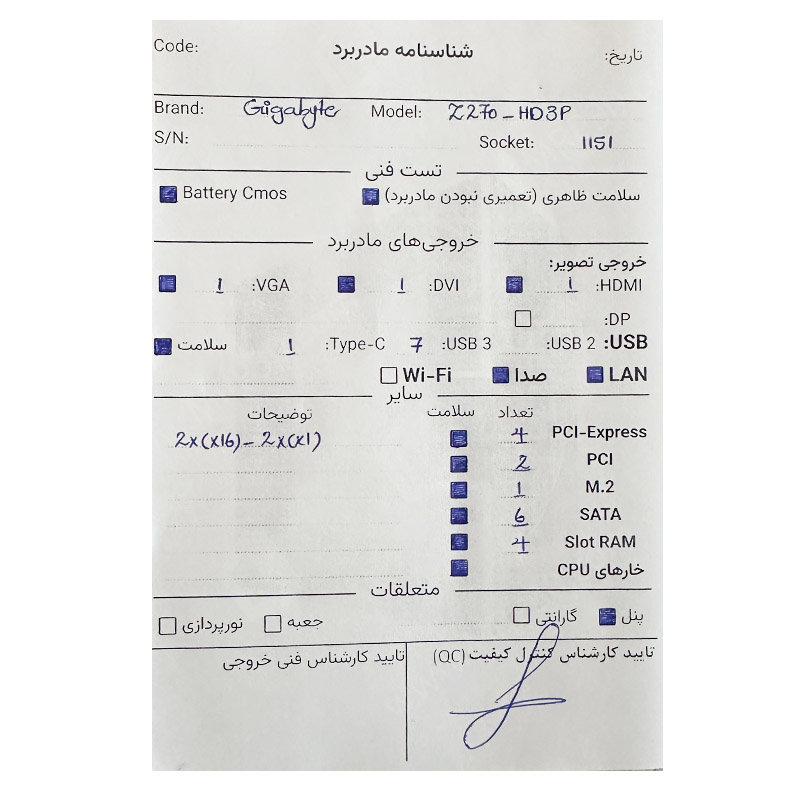 Code: شناسنامه مادربرد تاریخ:
Brand: Gigabyte Model: Z270_HD3P
S/N: Socket: 1151
تست فنی
سلامت ظاهری (تعمیری نبودن مادربرد) Battery Cmos
خروجی‌های مادربرد
خروجی تصویر:
HDMI: 1 DVI: 1 VGA: 1
DP:
USB: USB 2: USB 3: 7 Type-C: 1 سلامت
LAN صدا Wi-Fi
سایر
تعداد سلامت توضیحات
PCI-Express 4 2x(x16)_ 2x(x1)
PCI 2
M.2 1
SATA 6
Slot RAM 4
خارهای CPU
متعلقات
پنل گارانتی جعبه نورپردازی
تایید کارشناس کنترل کیفیت (QC) تایید کارشناس فنی خروجی